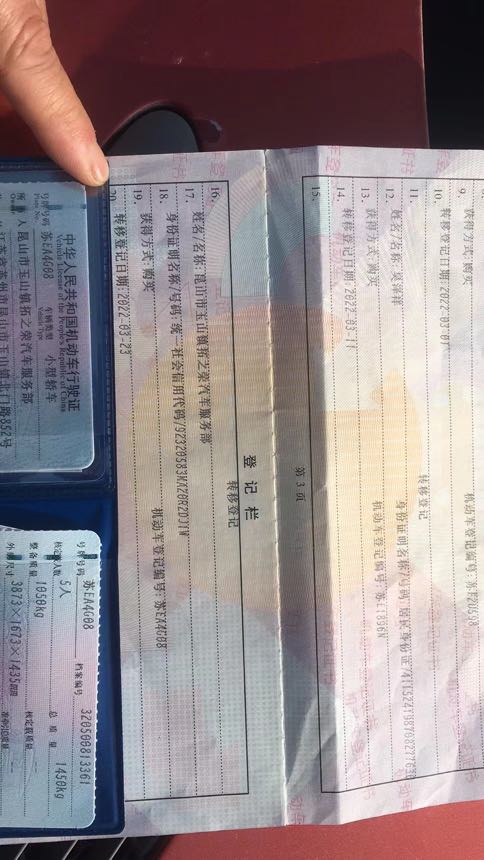 9. 获得方式:购买 机动车登记编号:
10. 转移登记日期:2022-03-01
转移登记
11. 姓名/名称:
身份证明名称/号码:居民身份证/
12. 获得方式:购买 机动车登记编号:
13. 转移登记日期:2022-03-11
14.
15.
第 3 页
登 记 栏
转移登记
16. 姓名/名称:昆山市玉山镇拓之荣汽车服务部
17. 身份证明名称/号码:统一社会信用代码/92320583MX20R2DJ1W
18. 获得方式:购买 机动车登记编号:苏EA4G08
19. 转移登记日期:2022-03-23
20.
中华人民共和国机动车行驶证
Vehicle License of the People's Republic of China
号牌号码 苏EA4G08 车辆类型 小型轿车
Plate No. Vehicle Type
所 有 人 昆山市玉山镇拓之荣汽车服务部
Owner
江苏省苏州市昆山市玉山镇北门路852号
号牌号码 苏EA4G08 档案编号 320500813361
核定载人数 5人 总 质 量 1450kg
整备质量 1050kg 核定载质量 --
外廓尺寸 3873×1673×1435mm 准牵引总质量 --